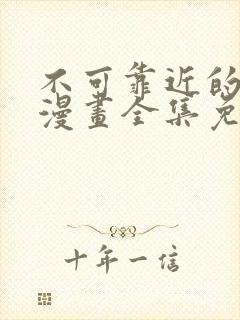 不可靠近的
漫畫全集免
十年一信